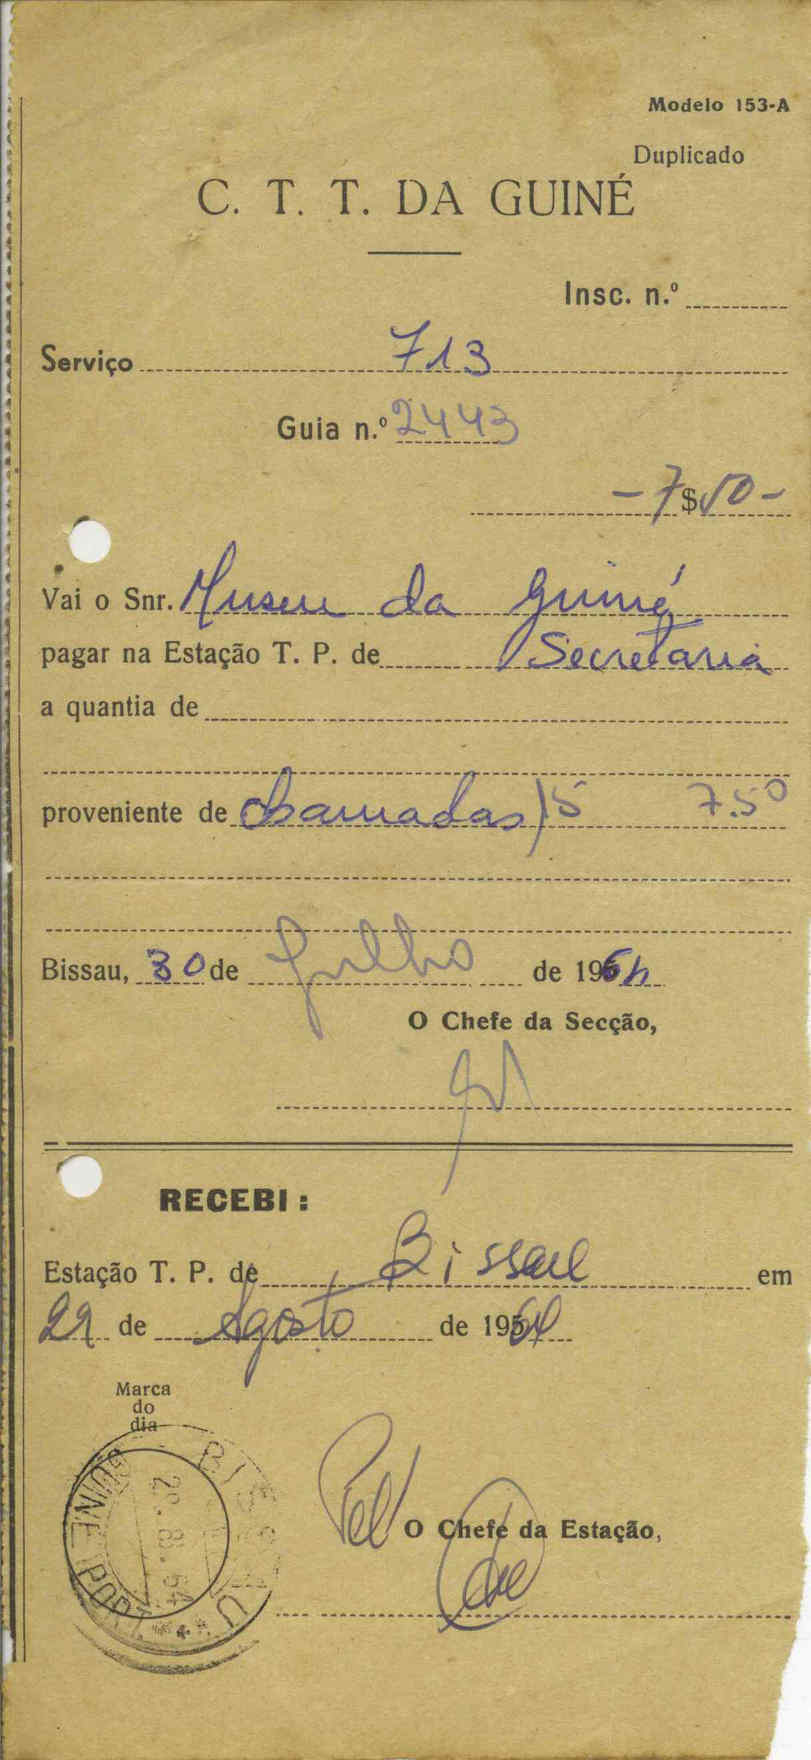 Modelo 153-A
Duplicado
C. T. T. DA GUINÉ
Insc. n.º
Serviço 713
Guia n.º 2443
- 7$50 -
Vai o Snr. Museu da Guiné
pagar na Estação T. P. de Secretaria
a quantia de
proveniente de chamadas 15 7.50
Bissau, 30 de Julho de 1964
O Chefe da Secção,
RECEBI :
Estação T. P. de Bissau em
29 de Agosto de 1964
Marca
do
dia
BISSAU
GUINÉ PORT.
O Chefe da Estação,